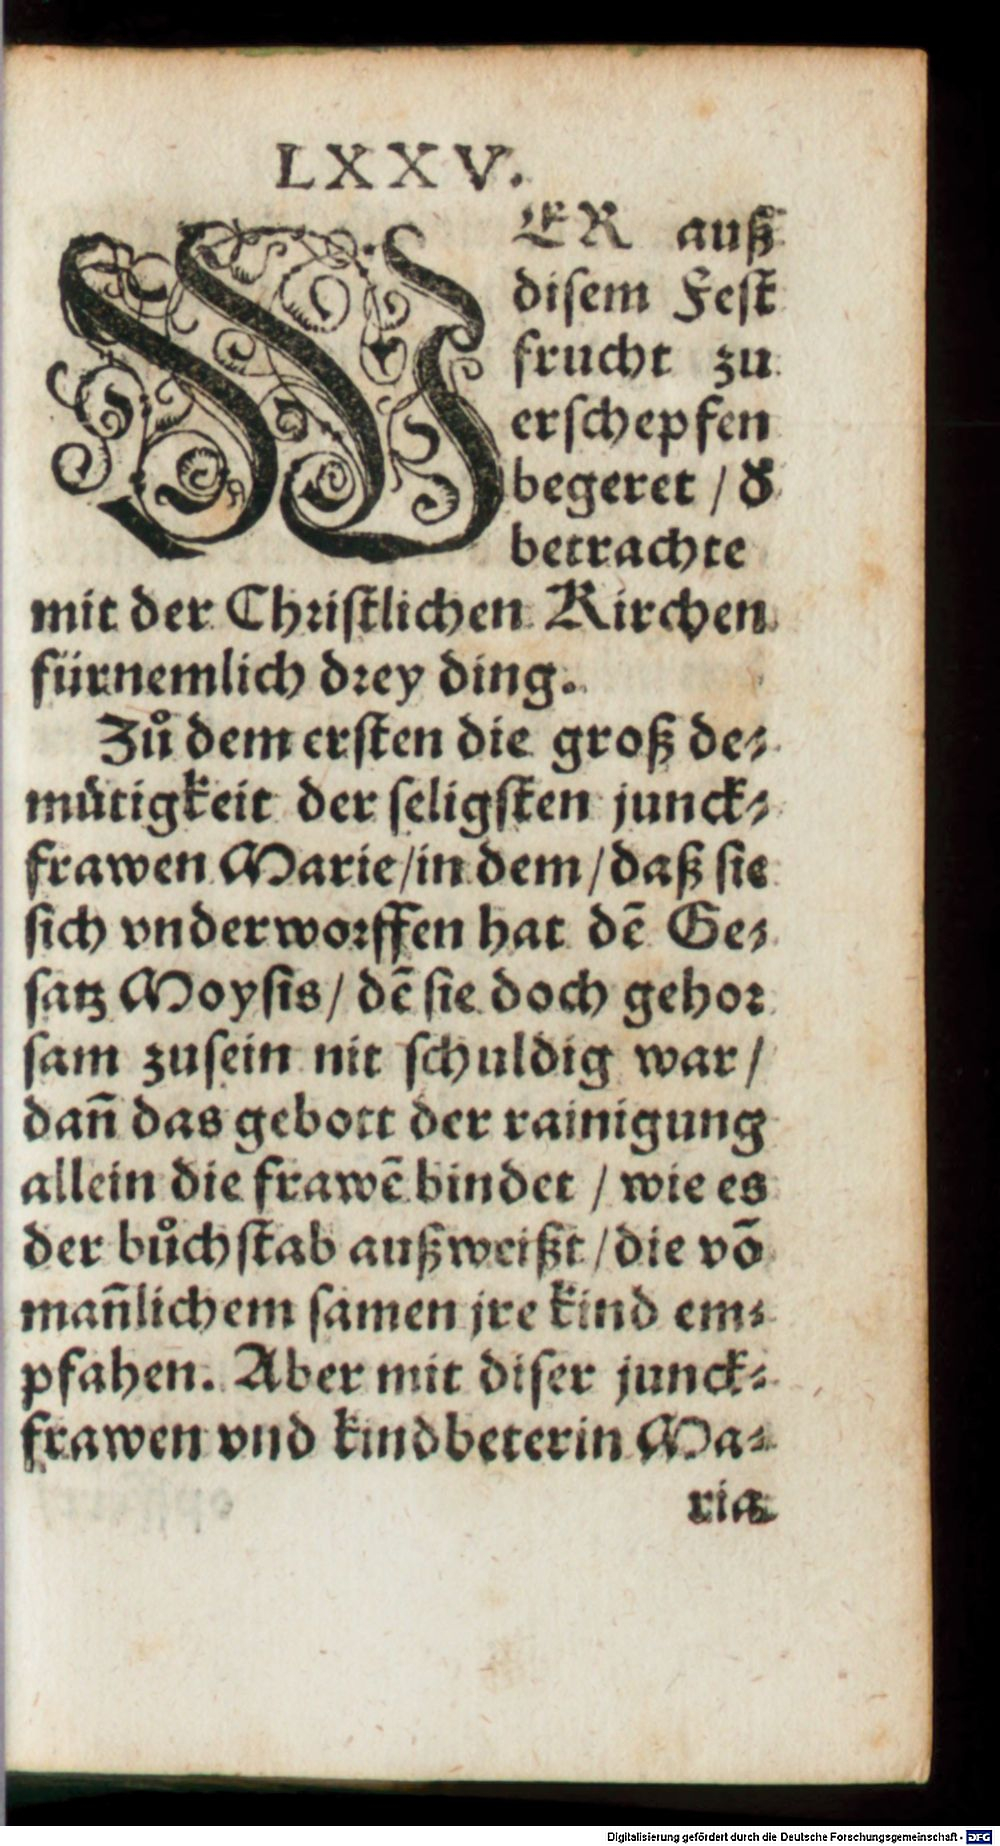 LXXV.
WER auß
disem Fest
frucht zu
erschepfen
begeret / d̕
betrachte
mit der Christlichen Kirchen
fürnemlich drey ding.
Zů dem ersten die groß de⸗
mütigkeit der seligsten junck⸗
frawen Marie/in dem/daß sie
sich vnderworffen hat dē Ge⸗
satz Moysis/ dē sie doch gehor
sam zusein nit schuldig war/
dañ das gebott der rainigung
allein die frawē bindet / wie es
der bůchstab außweißt/die vō
mañlichem samen jre kind em⸗
pfahen. Aber mit diser junck⸗
frawen vnd kindbeterin Ma⸗
ria
Digitalisierung gefördert durch die Deutsche Forschungsgemeinschaft - DFG